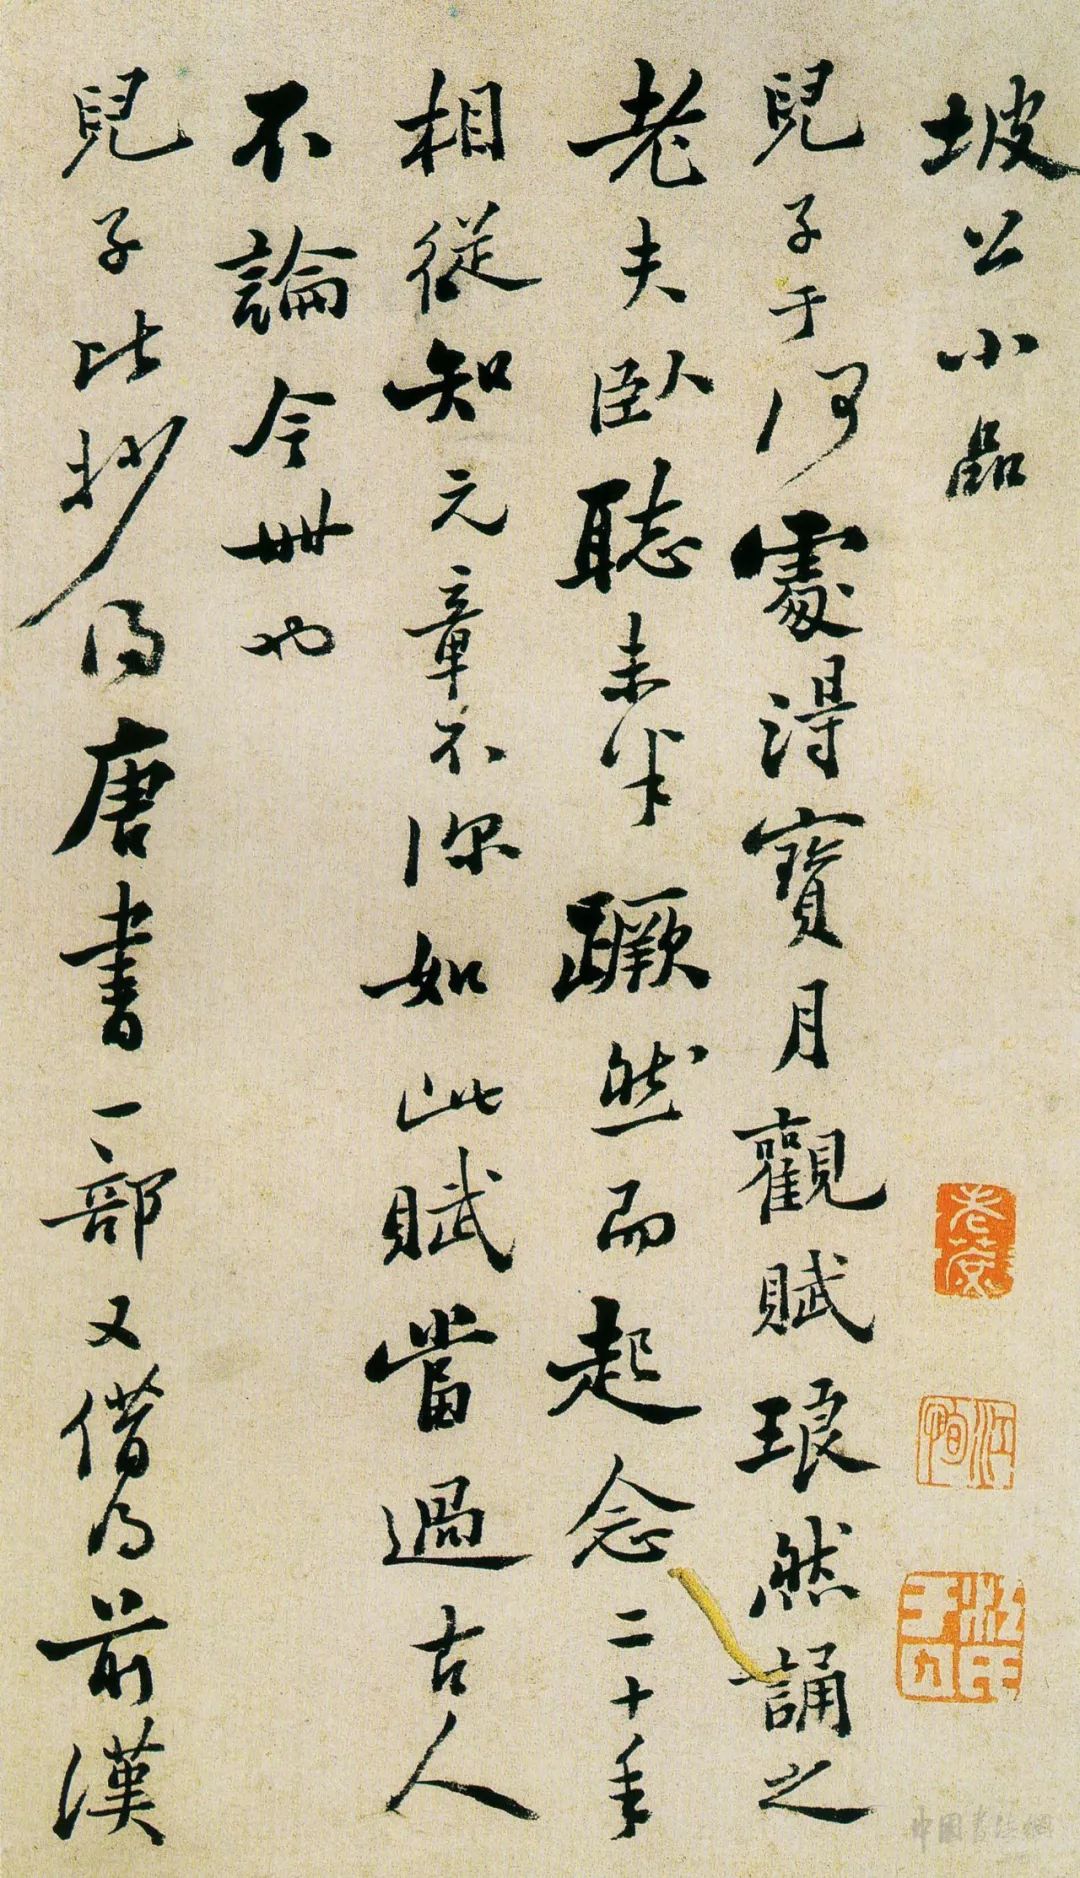 坡公小品
兒子于何處得寶月觀賦琅然誦之
老夫臥聽未半蹶然而起念二十年
相從知元章不深如此賦當過古人
不論今世也
兒子比抄得唐書一部又借得前漢
中国书法网